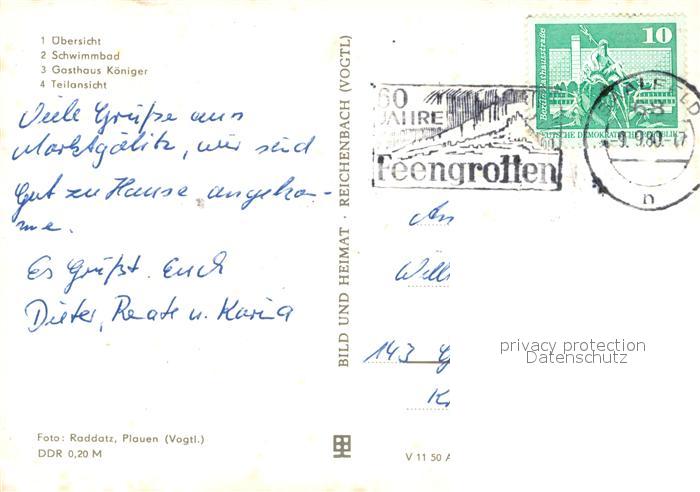 1 Übersicht
2 Schwimmbad
3 Gasthaus Königer
4 Teilansicht
Viele Grüße aus
Marktgölitz, wir sind
gut zu Hause angekom-
me.
Es Grüßt Euch
Dieter, Renate u. Karina
Foto: Raddatz, Plauen (Vogtl.)
DDR 0,20 M
BILD UND HEIMAT · REICHENBACH (VOGTL)
V 11 50 A
60
JAHRE
Feengrotten
10
Berlin, Rathausstraße
DEUTSCHE DEMOKRATISCHE REPUBLIK
-9. 9.80.-17
n
An
143
privacy protection
Datenschutz